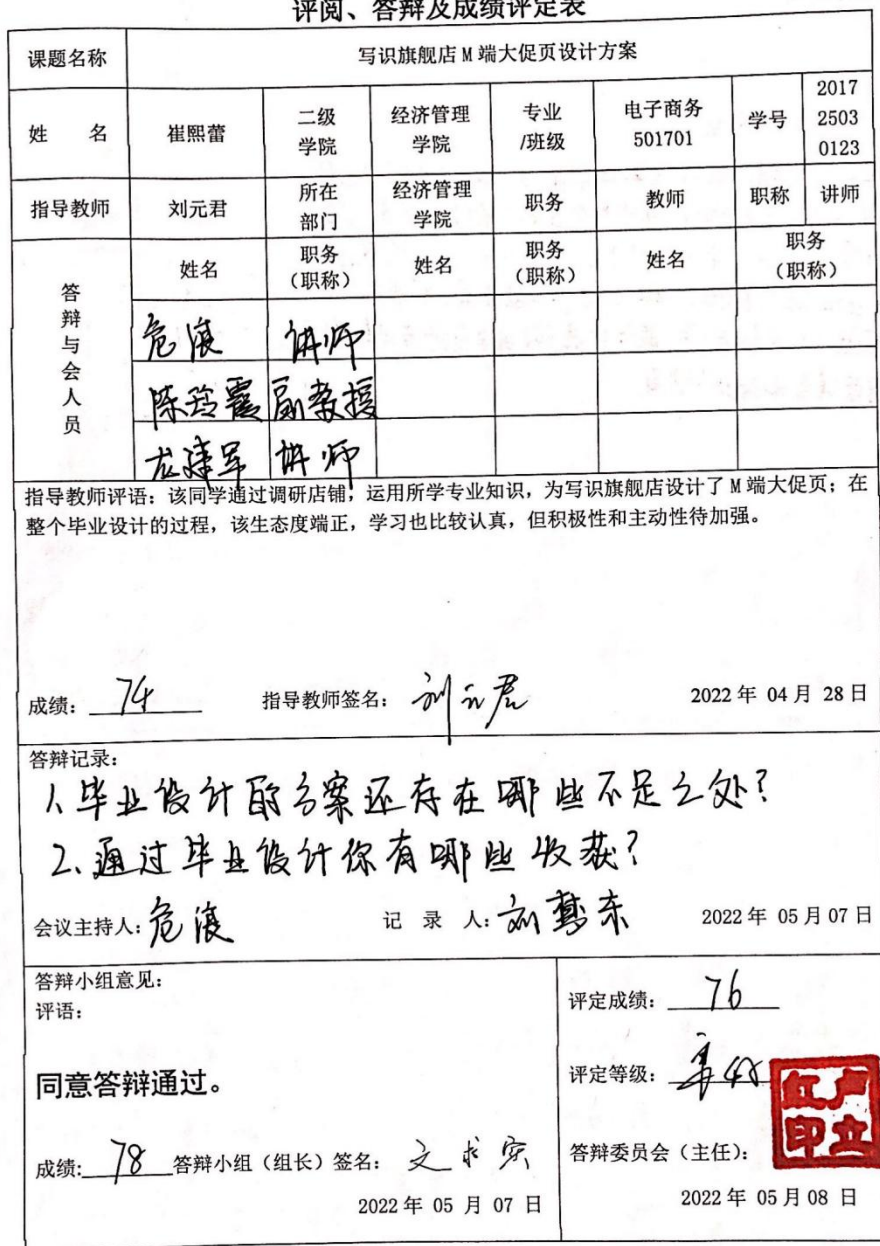 评阅、答辩及成绩评定表
课题名称 写识旗舰店 M 端大促页设计方案
姓 名 崔熙蕾 二级学院 经济管理学院 专业/班级 电子商务501701 学号 2017 2503 0123
指导教师 刘元君 所在部门 经济管理学院 职务 教师 职称 讲师
答辩与会人员 姓名 职务（职称） 姓名 职务（职称） 姓名 职务（职称）
危浪 讲师
陈玲霞 副教授
龙建军 讲师
指导教师评语：该同学通过调研店铺，运用所学专业知识，为写识旗舰店设计了 M 端大促页；在
整个毕业设计的过程，该生态度端正，学习也比较认真，但积极性和主动性待加强。
成绩：74 指导教师签名：刘元君 2022 年 04 月 28 日
答辩记录：
1.毕业设计的方案还存在哪些不足之处？
2.通过毕业设计你有哪些收获？
会议主持人：危浪 记 录 人：刘慧东 2022 年 05 月 07 日
答辩小组意见：
评语：
同意答辩通过。
成绩：78 答辩小组（组长）签名：文求实
2022 年 05 月 07 日
评定成绩：76
评定等级：
答辩委员会（主任）：
卢立红印
2022 年 05 月 08 日